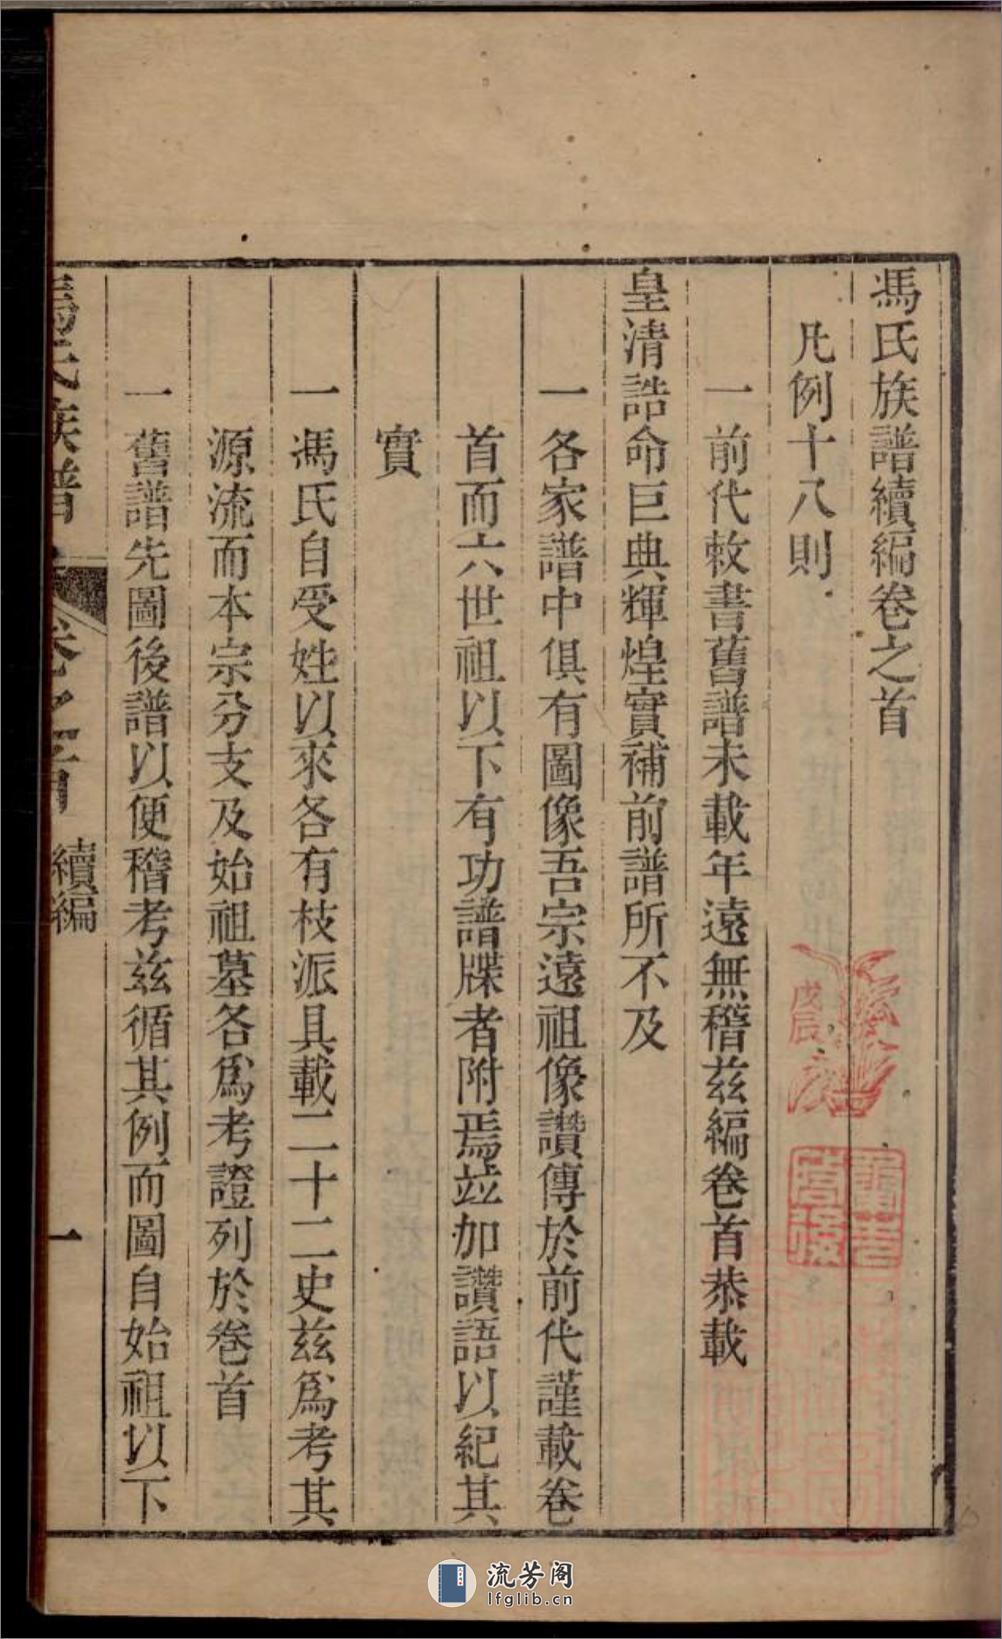 馮氏族譜續編卷之首
凡例十八則
一前代敕書舊譜未載年遠無稽茲編卷首恭載
皇清誥命巨典輝煌實補前譜所不及
一各家譜中俱有圖像吾宗遠祖像讚傳於前代謹載卷
首而六世祖以下有功譜牒者附焉竝加讚語以紀其
實
一馮氏自受姓以來各有枝派具載二十二史茲爲考其
源流而本宗分支及始祖墓各爲考證列於卷首
一舊譜先圖後譜以便稽考茲循其例而圖自始祖以下
馮氏族譜 卷之首 續編 一
戊辰
流芳阁
lfglib.cn